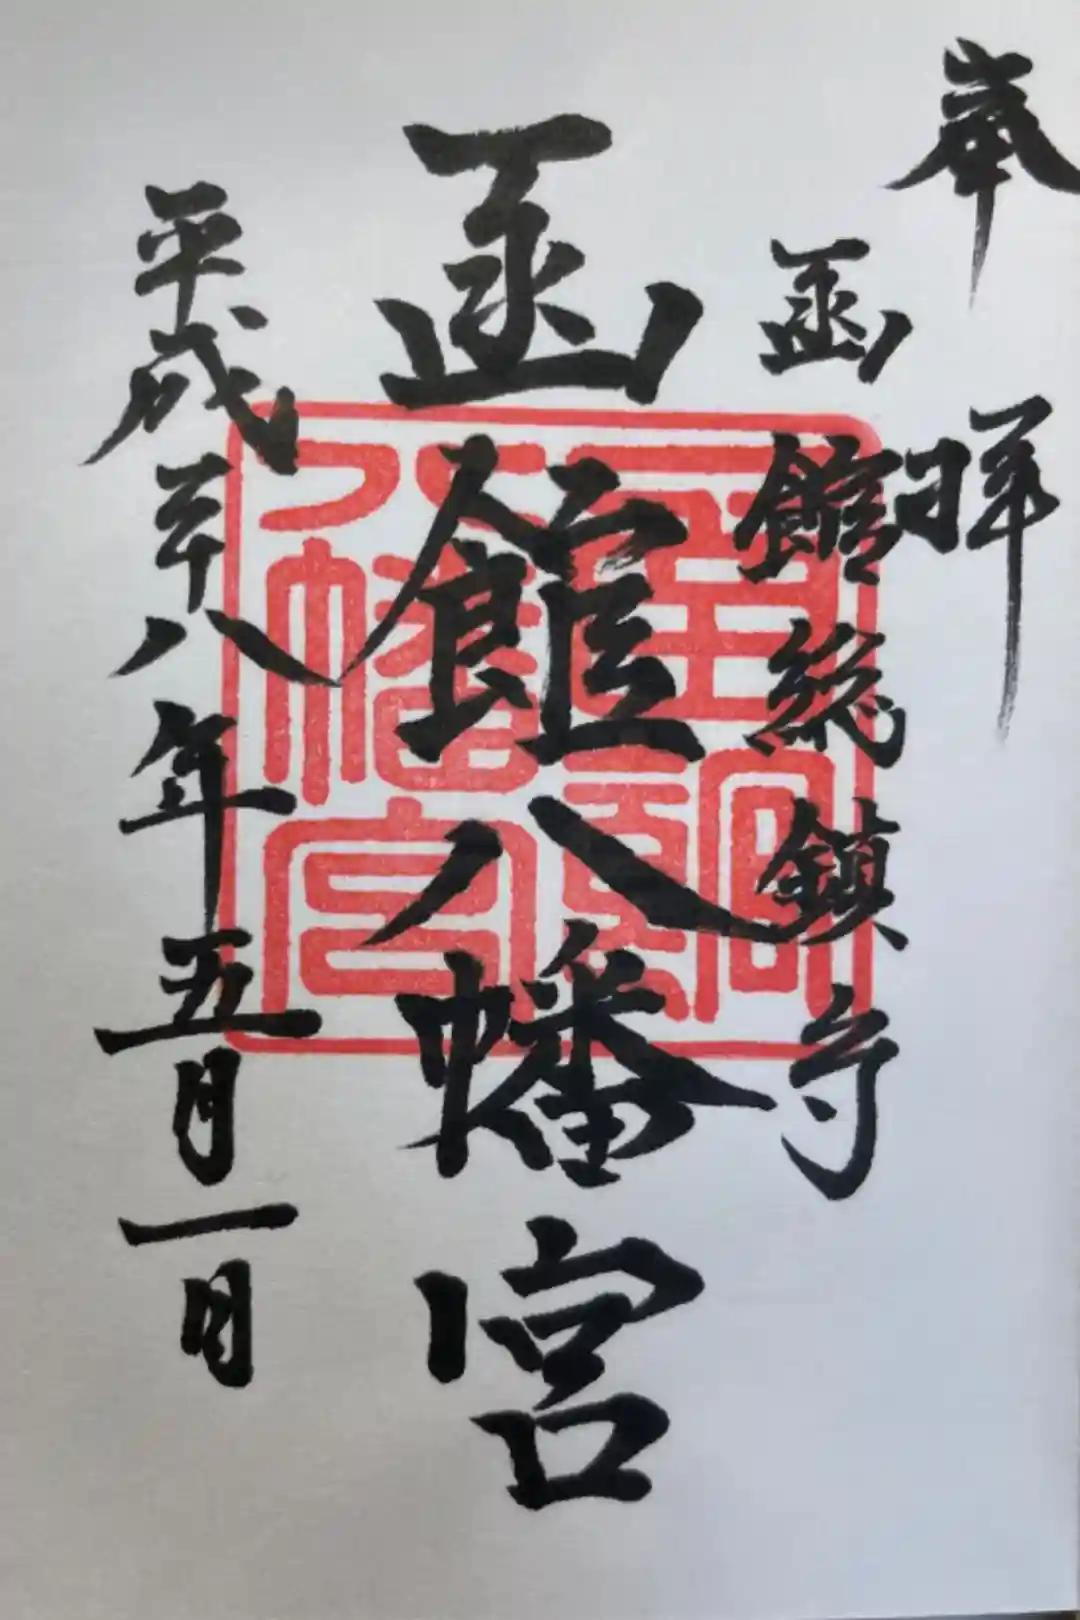 奉拝
函館総鎮守
函館八幡宮
平成二十八年五月一日
八幡宮